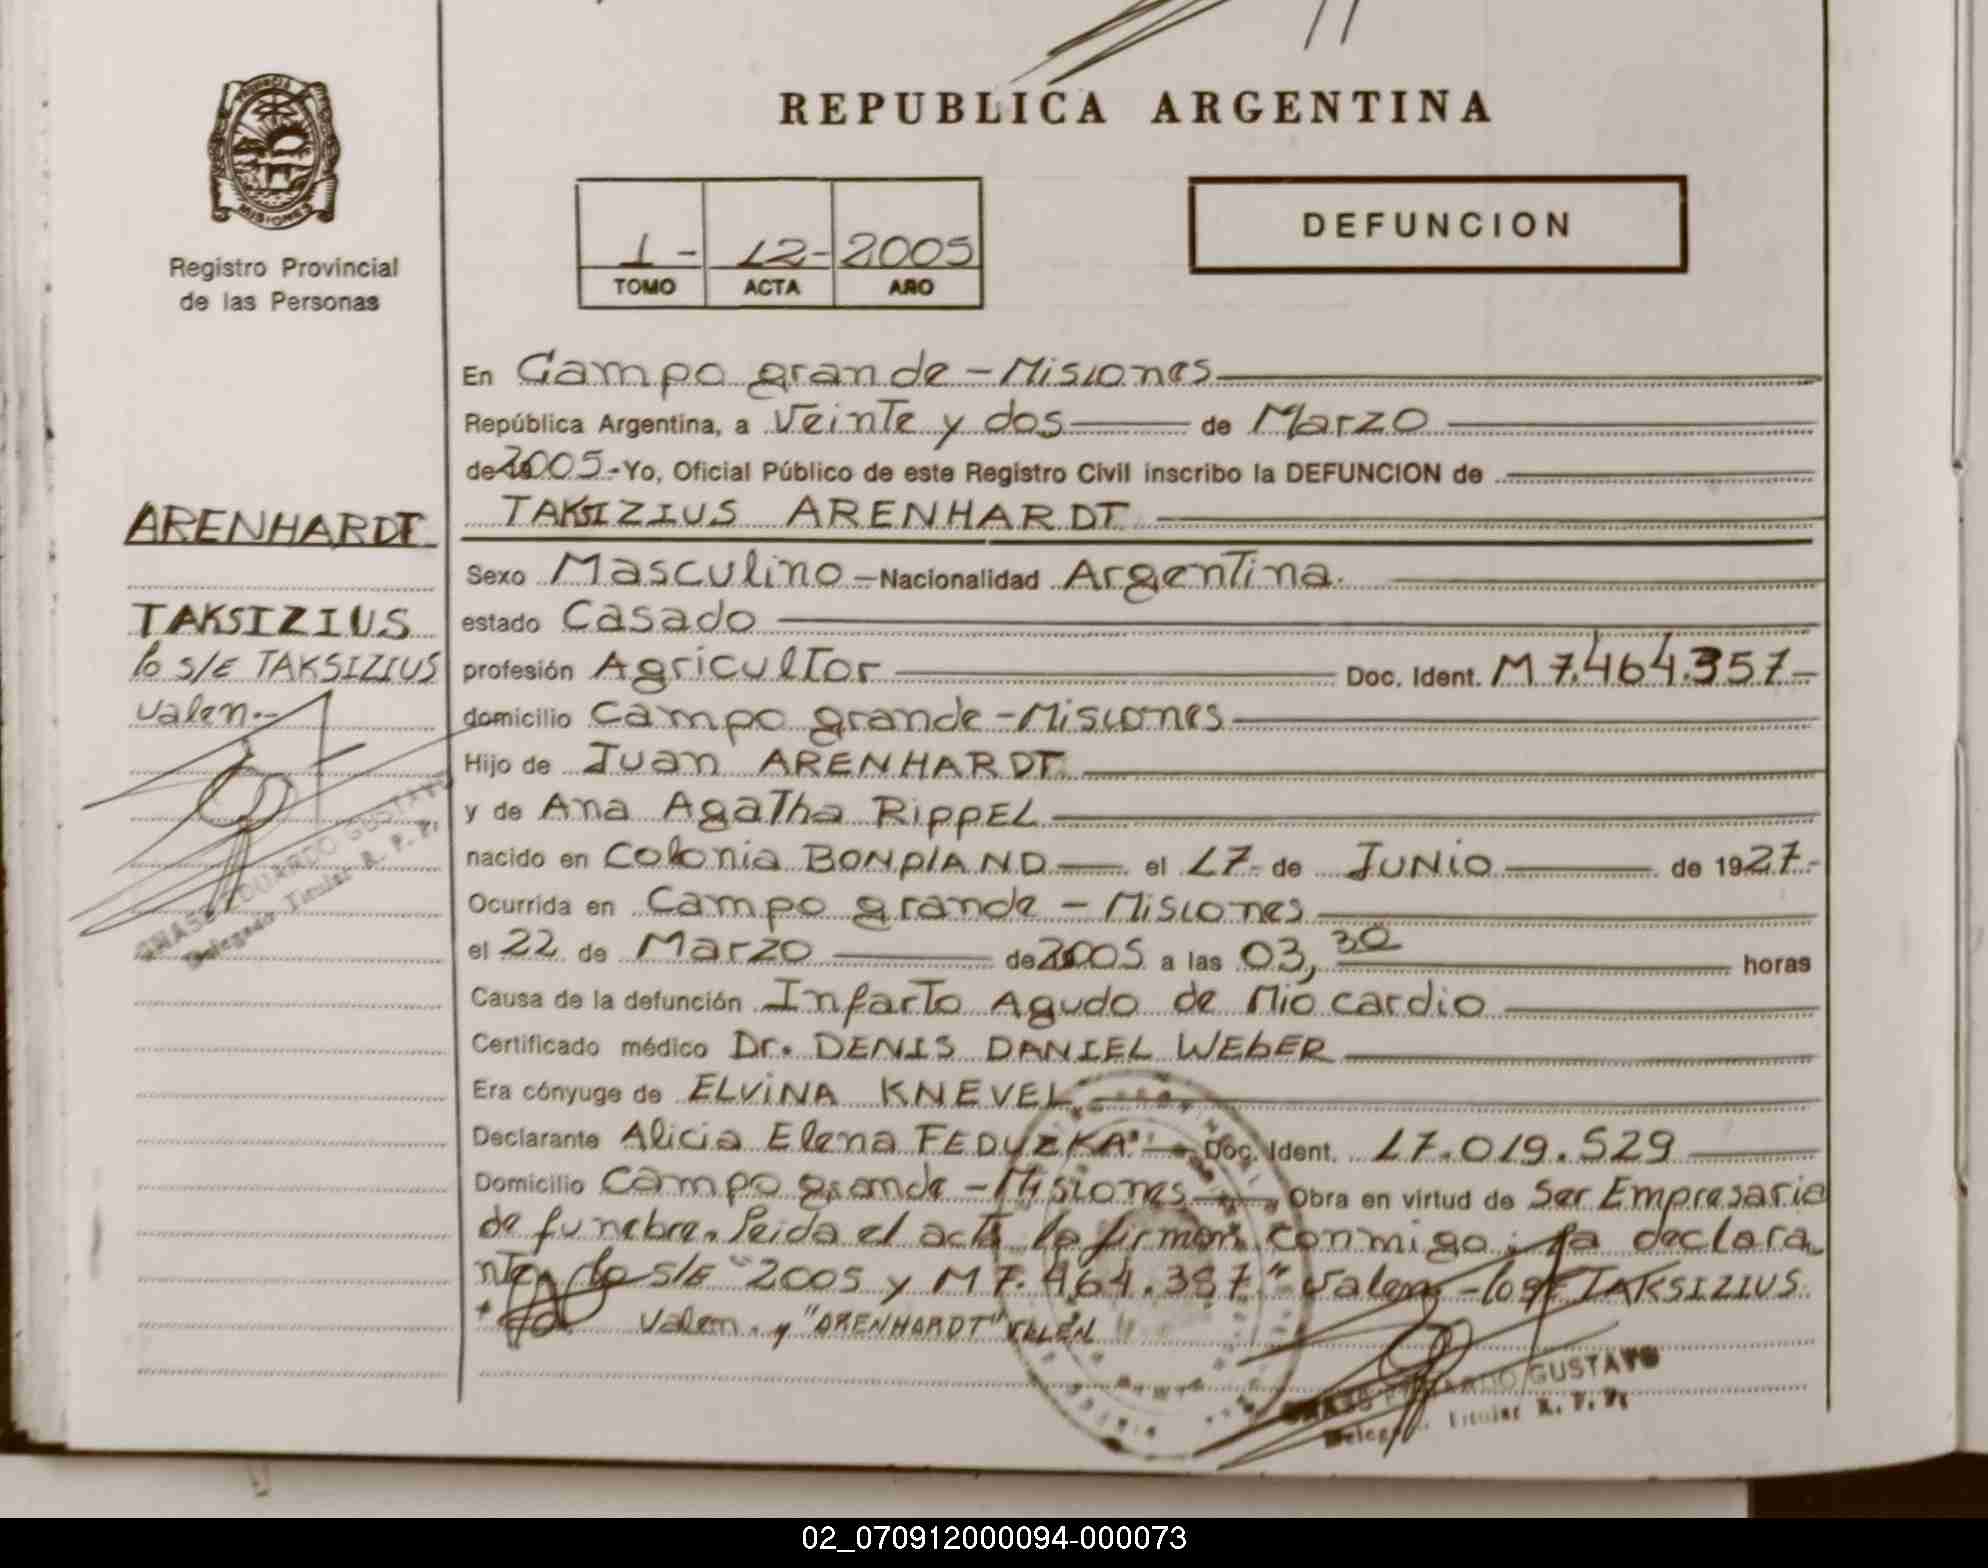 REPUBLICA ARGENTINA
PROVINCIA
MISIONES
Registro Provincial
de las Personas
1 - 12 - 2005
TOMO ACTA AÑO
DEFUNCION
En Campo grande - Misiones
República Argentina, a Veinte y dos de Marzo
de 2005.- Yo, Oficial Público de este Registro Civil inscribo la DEFUNCION de
ARENHARDT
TAKSIZIUS ARENHARDT
Sexo Masculino - Nacionalidad Argentina.
TAKSIZIUS
estado Casado
lo s/E TAKSIZIUS
profesión Agricultor Doc. Ident. M 7.464.357-
Valen.-
domicilio Campo grande - Misiones
Hijo de Juan ARENHARDT
y de Ana Agatha RIPPEL
nacido en Colonia BONPLAND el 17- de JUNIO de 1927.-
Ocurrida en Campo grande - Misiones
el 22 de Marzo de 2005 a las 03, 30 horas
Causa de la defunción Infarto Agudo de Mio cardio
Certificado médico Dr. DENIS DANIEL WEBER
Era cónyuge de ELVINA KNEVEL
Declarante Alicia Elena FEDUZKA Doc. Ident. 17.019.529
Domicilio Campo grande - Misiones Obra en virtud de Ser Empresaria
de funebre. leida el acta la firman conmigo; la declara
nte, lo s/E "2005 y M 7.464.357" Valen - lo s/E TAKSIZIUS
Valen. y "ARENHARDT" VALEN
EDUARDO GUSTAVO
Titular R. P. P.
GUSTAVO
Titular R. P. P.
02_070912000094-000073